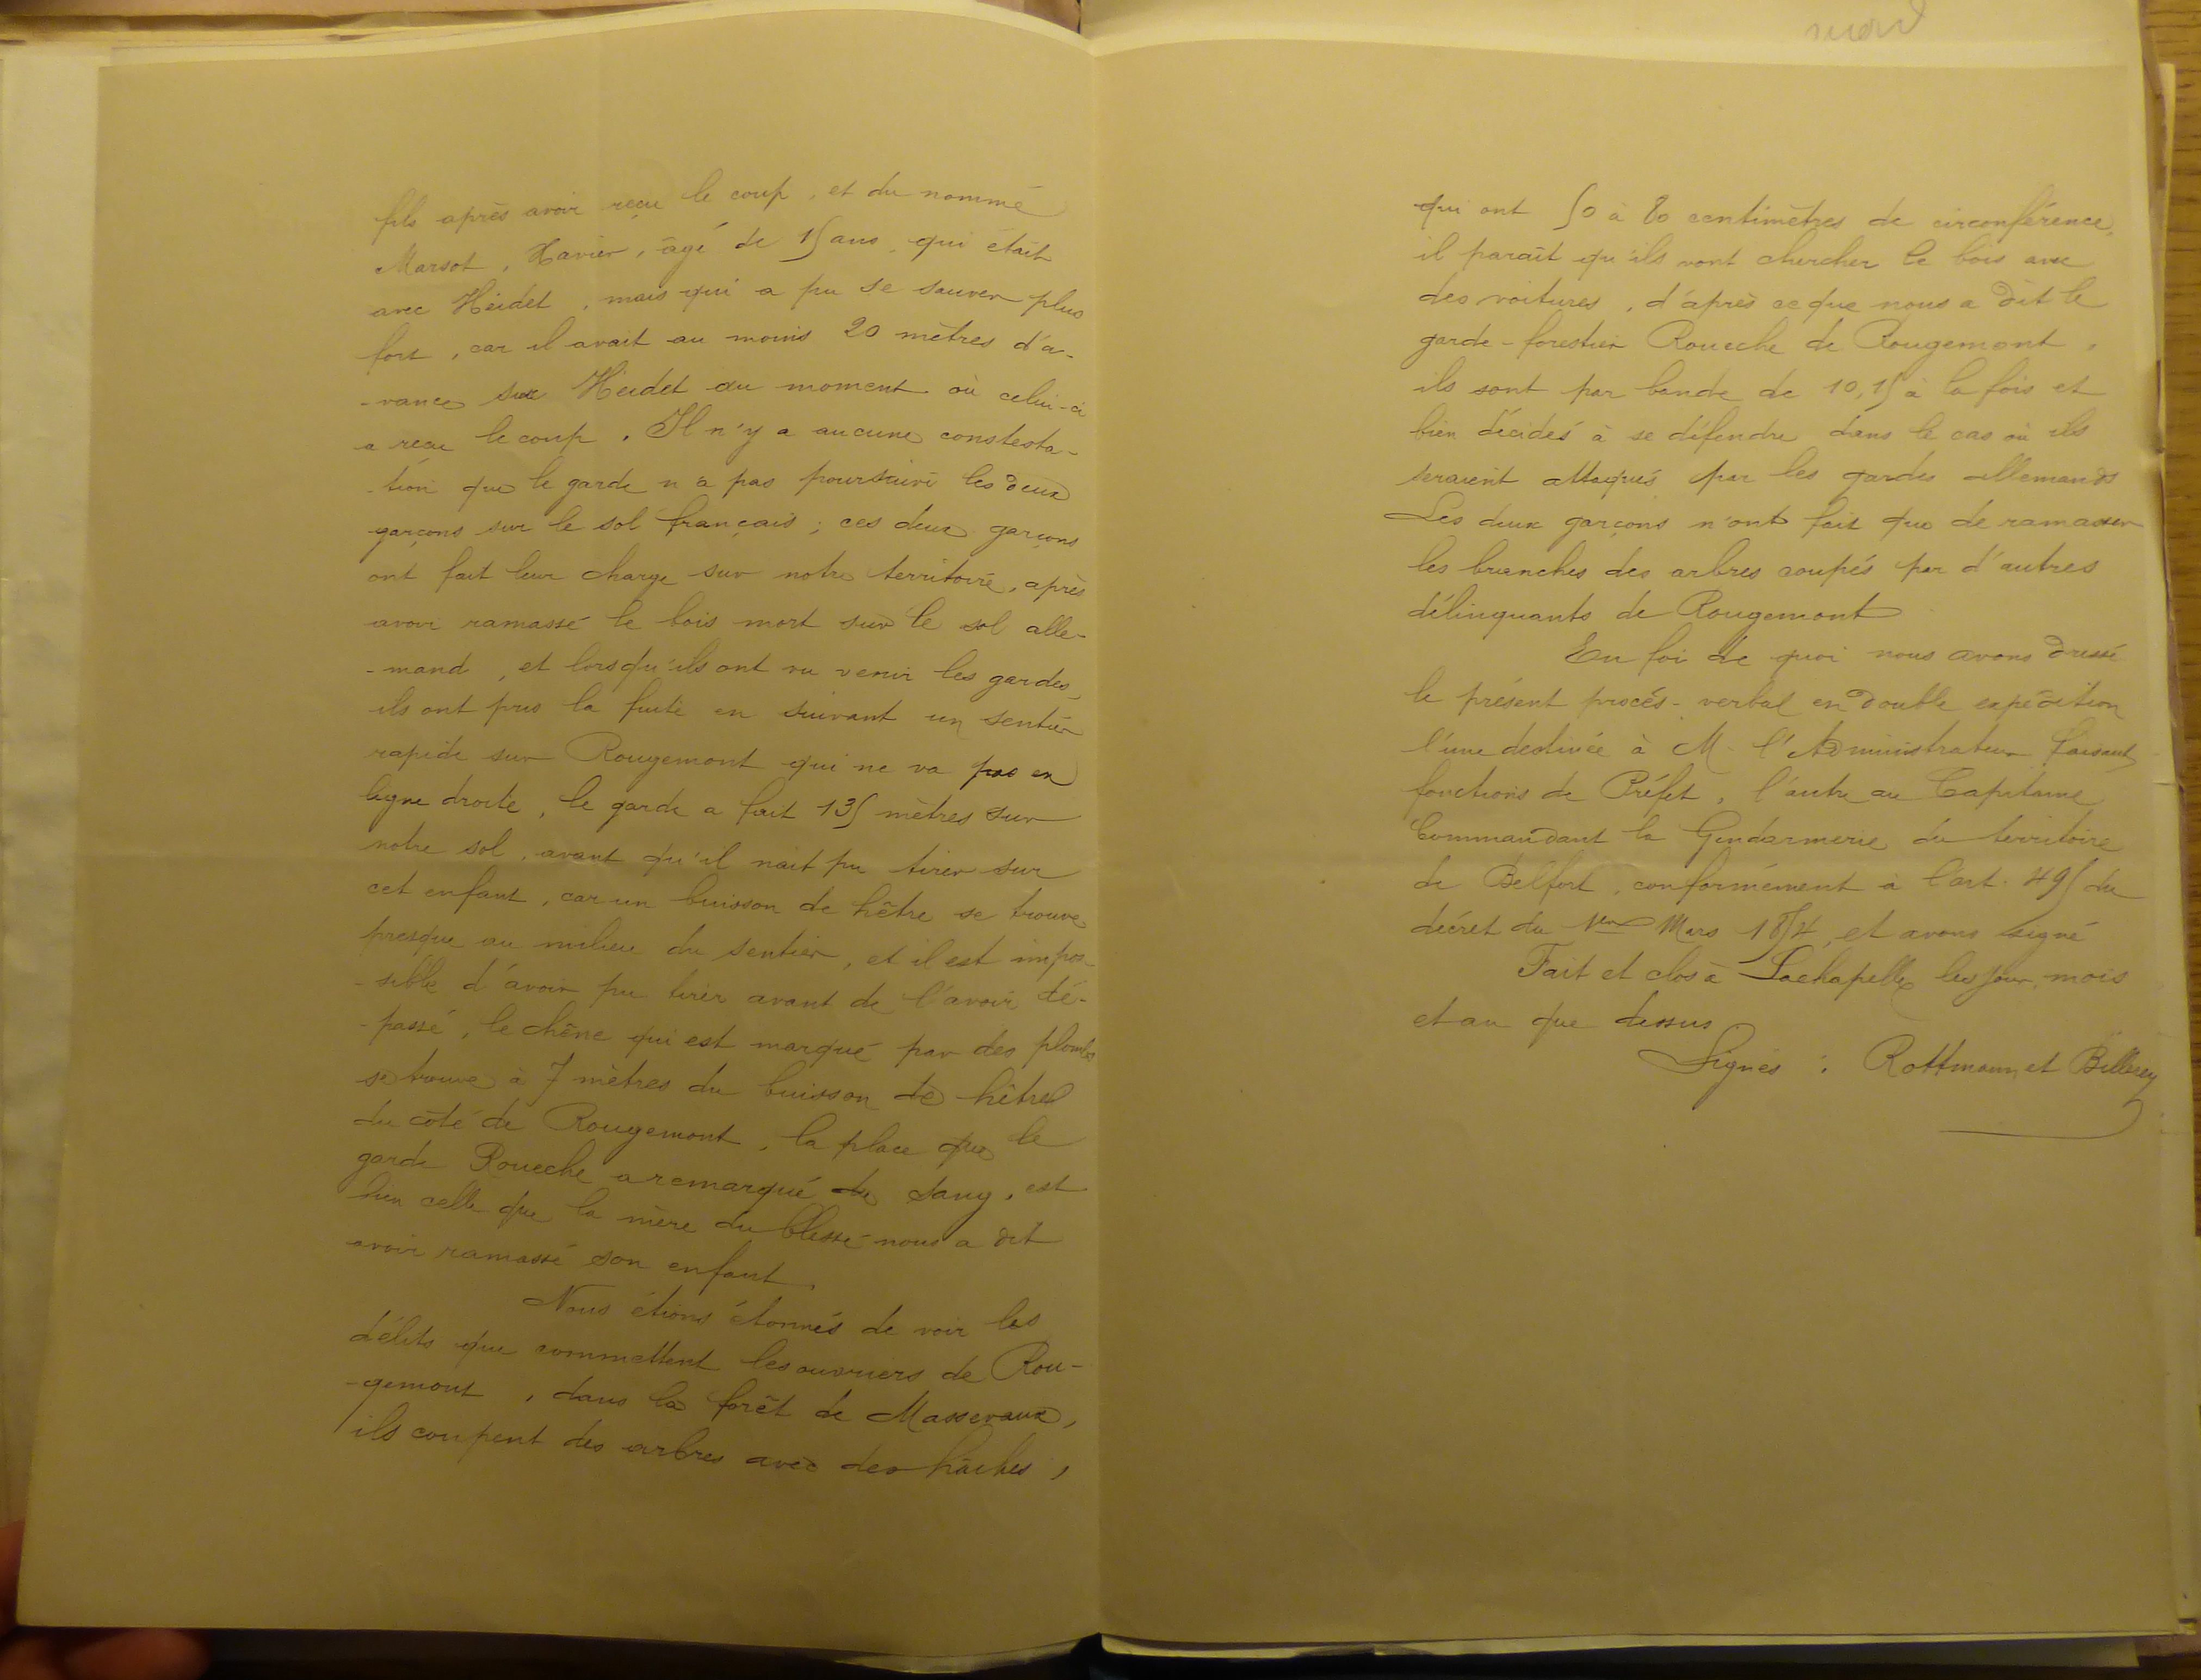 fils après avoir reçu le coup, et du nommé
Marsot, Xavier, âgé de 15 ans, qui était
avec Heidet, mais qui a pu se sauver plus
fort, car il avait au moins 20 mètres d'a-
-vance sur Heidet au moment où celui-ci
a reçu le coup. Il n'y a aucune constesta-
-tion que le garde n'a pas poursuivi les deux
garçons sur le sol français; ces deux garçons
ont fait leur charge sur notre territoire, après
avoir ramassé le bois mort sur le sol alle-
-mand, et lorsqu'ils ont vu venir les gardes,
ils ont pris la fuite en suivant un sentier
rapide sur Rougemont qui ne va pas en
ligne droite, le garde a fait 135 mètres sur
notre sol, avant qu'il nait pu tirer sur
cet enfant, car un buisson de hêtre se trouve
presque au milieu du sentier, et il est impos-
-sible d'avoir pu tirer avant de l'avoir dé-
-passé, le chêne qui est marqué par des plombs
se trouve à 7 mètres du buisson de hêtre
du côté de Rougemont, la place que le
garde Roueche a remarqué du sang, est
bien celle que la mère du blessé nous a dit
avoir ramassé son enfant.
Nous étions étonnés de voir les
délits que commettent les ouvriers de Rou-
-gemont, dans la forêt de Massevaux,
ils coupent des arbres avec des hâches,
qui ont 50 à 80 centimètres de circonférence,
il paraît qu'ils vont chercher le bois avec
des voitures, d'après ce que nous a dit le
garde-forestier Roueche de Rougemont,
ils sont par bande de 10, 15 à la fois et
bien décidés à se défendre dans le cas où ils
seraient attaqués par les gardes allemands
Les deux garçons n'ont fait que de ramasser
les branches des arbres coupés par d'autres
délinquants de Rougemont
En foi de quoi nous avons dressé
le présent procès-verbal en double expédition
l'une destinée à M. l'Administrateur faisant
fonctions de Préfet, l'autre au Capitaine
Commandant la Gendarmerie du territoire
de Belfort, conformément à l'art. 495 du
décret du 1er Mars 1854, et avons signé
Fait et clos à Lachapelle les jour, mois
et an que dessus
Signés : Rottmann et Billerey